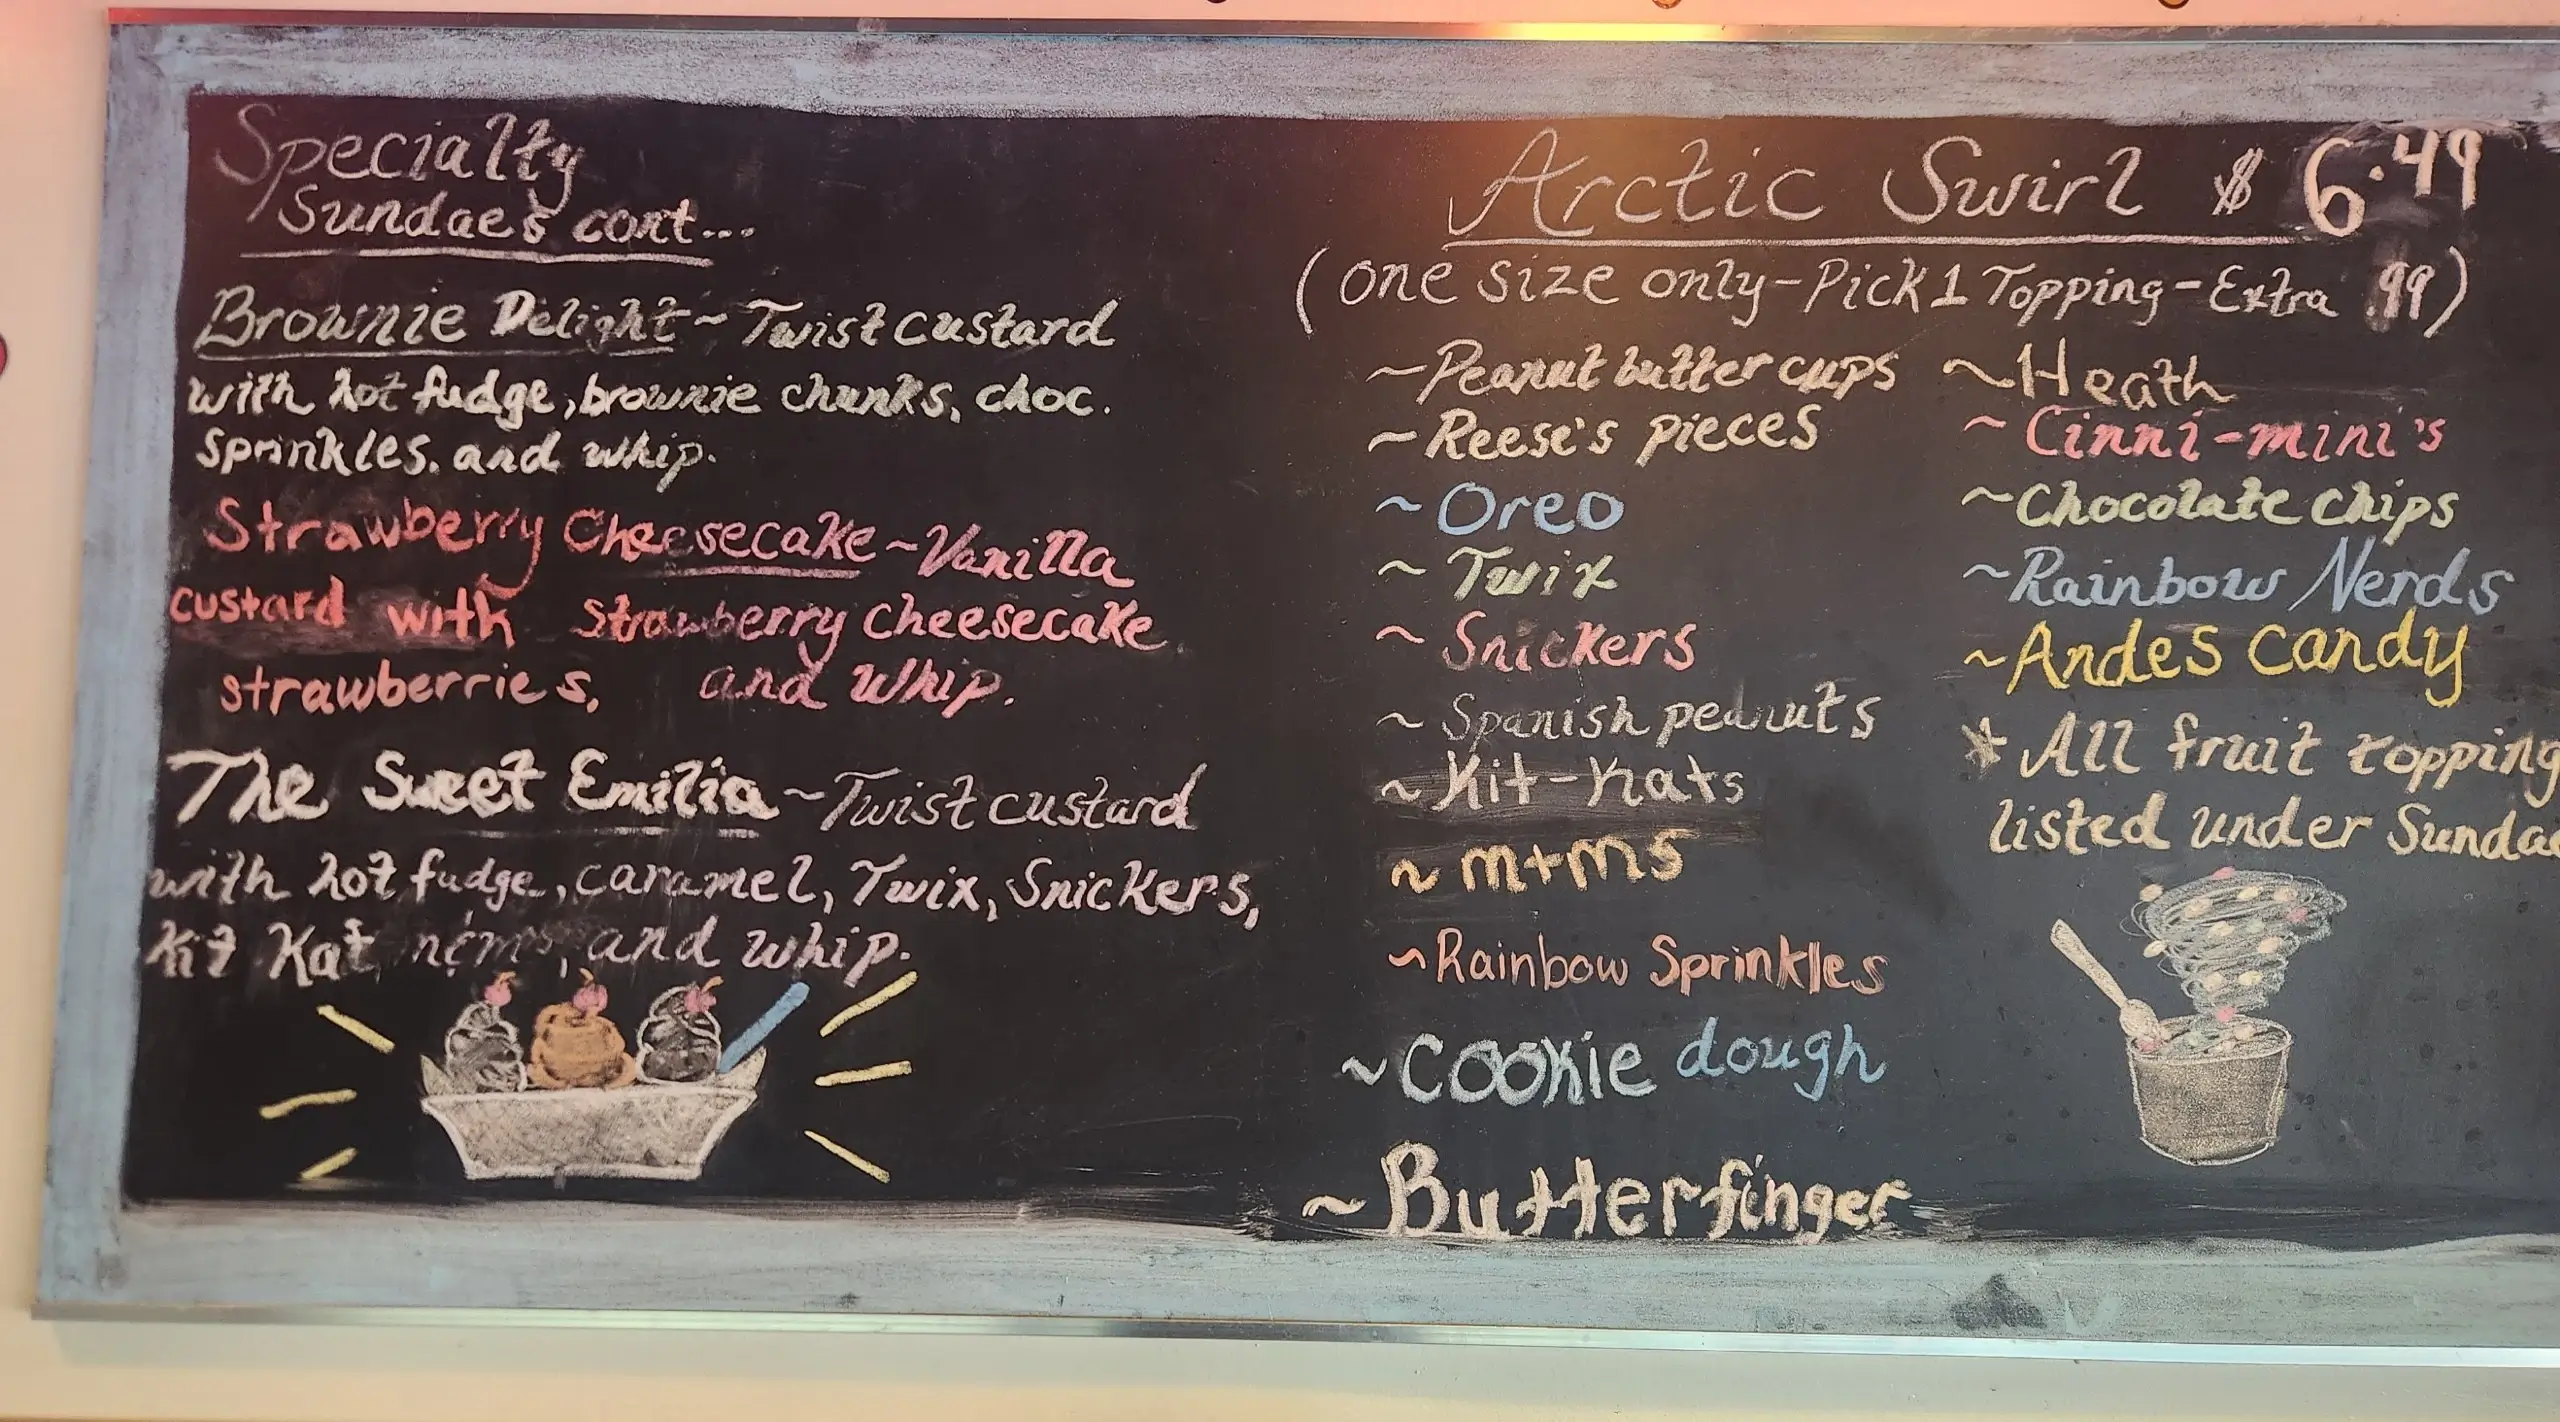 Specialty
Sundaes cont...
Brownie Delight ~ Twist custard
with hot fudge, brownie chunks, choc.
sprinkles. and whip.
Strawberry Cheesecake ~ Vanilla
custard with strawberry cheesecake
strawberries, and whip.
The Sweet Emilia ~ Twist custard
with hot fudge, caramel, Twix, Snickers,
Kit Kat, and whip.
Arctic Swirl $6.49
(one size only - Pick 1 Topping - Extra .99)
~ Peanut butter cups
~ Reese's pieces
~ Oreo
~ Twix
~ Snickers
~ Spanish peanuts
~ Kit-Kats
~ m+ms
~ Rainbow Sprinkles
~ Cookie dough
~ Butterfinger
~ Heath
~ Cinni-mini's
~ Chocolate chips
~ Rainbow Nerds
~ Andes candy
* All fruit topping
listed under Sundae